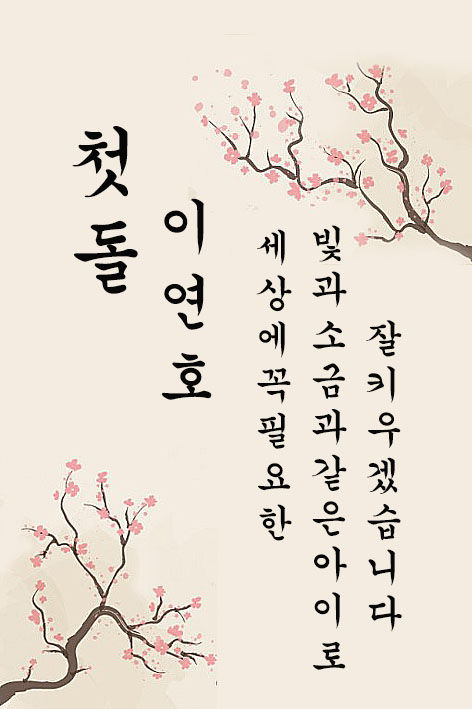 첫돌
이연호
세상에꼭필요한
빛과소금과같은아이로
잘키우겠습니다